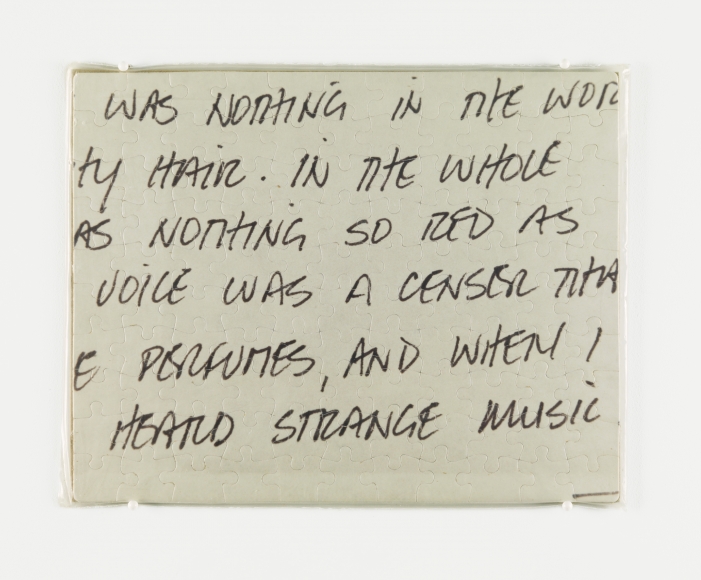 WAS NOTHING IN THE WOR
TY HAIR. IN THE WHOLE
AS NOTHING SO RED AS
VOICE WAS A CENSER THA
E PERFUMES, AND WHEN I
HEARD STRANGE MUSIC